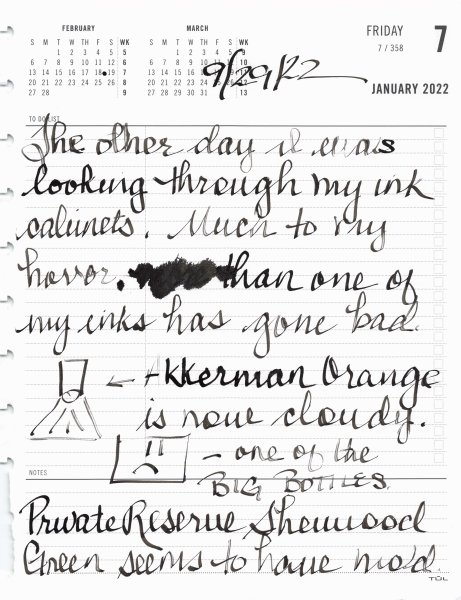 FRIDAY
7 / 358
7
JANUARY 2022
FEBRUARY
S M T W TH F S WK
1 2 3 4 5 5
6 7 8 9 10 11 12 6
13 14 15 16 17 18 19 7
20 21 22 23 24 25 26 8
27 28 9
MARCH
S M T W TH F S WK
1 2 3 4 5 9
6 7 8 9
13 14 15 16 17
20 21 22 23 24 25 26 12
27 28 29 30 31 13
9/29/22
TO DO LIST
The other day I was
looking through my ink
cabinets. Much to my
horror, than one of
my inks has gone bad.
← Akkerman Orange
is now cloudy.
– one of the
BIG BOTTLES.
NOTES
Private Reserve Sherwood
Green seems to have mold.
TUL